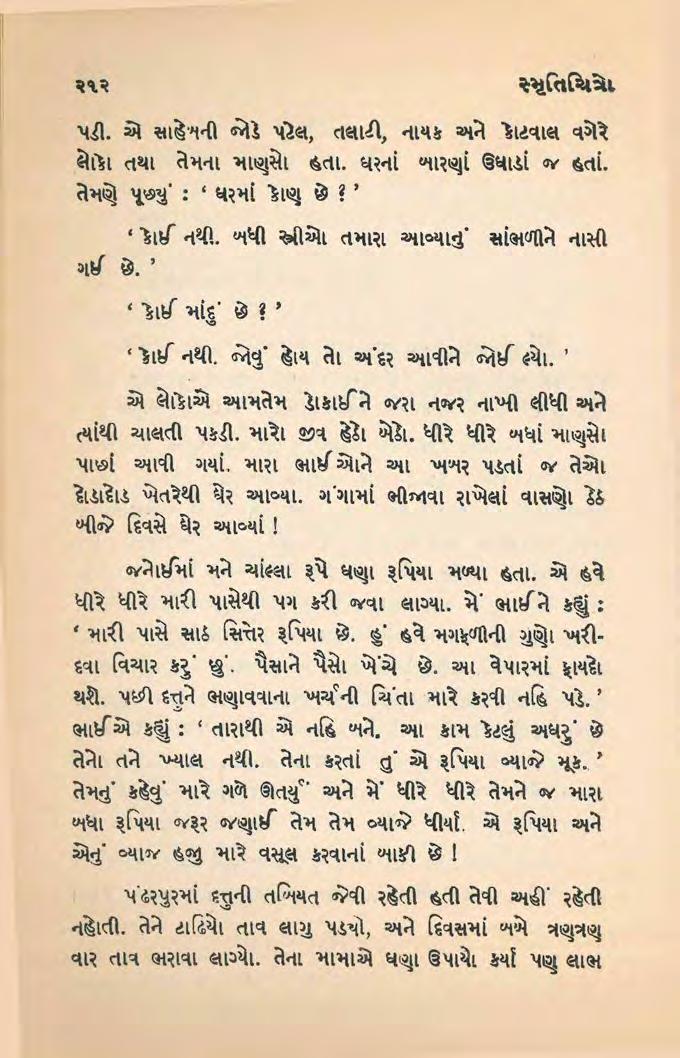 ૨૧૨ સ્મૃતિચિત્રો
પડી. એ સાહેબની જોડે પટેલ, તલાટી, નાયક અને કોટવાલ વગેરે
લોકો તથા તેમના માણસો હતા. ઘરનાં બારણાં ઉઘાડાં જ હતાં.
તેમણે પૂછ્યું : ‘ ઘરમાં કોણ છે ? ’
‘ કોઈ નથી. બધી સ્ત્રીઓ તમારા આવ્યાનું સાંભળીને નાસી
ગઈ છે. ’
‘ કોઈ માંદું છે ? ’
‘ કોઈ નથી. જોવું હોય તો અંદર આવીને જોઈ લ્યો. ’
એ લોકોએ આમતેમ ડોકાઈને જરા નજર નાખી લીધી અને
ત્યાંથી ચાલતી પકડી. મારો જીવ હેઠો બેઠો. ધીરે ધીરે બધાં માણસો
પાછાં આવી ગયાં. મારા ભાઈઓને આ ખબર પડતાં જ તેઓ
દોડાદોડ ખેતરેથી ઘેર આવ્યા. ગંગામાં ભીંજાવા રાખેલાં વાસણો ઠેઠ
બીજે દિવસે ઘેર આવ્યાં !
જનોઈમાં મને ચાંલ્લા રૂપે ઘણા રૂપિયા મળ્યા હતા. એ હવે
ધીરે ધીરે મારી પાસેથી પગ કરી જવા લાગ્યા. મેં ભાઈને કહ્યું :
‘ મારી પાસે સાઠ સિત્તેર રૂપિયા છે. હું હવે મગફળીની ગુણો ખરી-
દવા વિચાર કરું છું. પૈસાને પૈસો ખેંચે છે. આ વેપારમાં ફાયદો
થશે. પછી દત્તુને ભણાવવાના ખર્ચની ચિંતા મારે કરવી નહિ પડે. ’
ભાઈએ કહ્યું : ‘ તારાથી એ નહિ બને. આ કામ કેટલું અઘરું છે
તેનો તને ખ્યાલ નથી. તેના કરતાં તું એ રૂપિયા વ્યાજે મૂક. ’
તેમનું કહેવું મારે ગળે ઊતર્યું અને મેં ધીરે ધીરે તેમને જ મારા
બધા રૂપિયા જરૂર જણાઈ તેમ તેમ વ્યાજે ધીર્યા. એ રૂપિયા અને
એનું વ્યાજ હજી મારે વસૂલ કરવાનાં બાકી છે !
પંઢરપુરમાં દત્તુની તબિયત જેવી રહેતી હતી તેવી અહીં રહેતી
નહોતી. તેને ટાઢિયો તાવ લાગુ પડયો, અને દિવસમાં બબે ત્રણત્રણ
વાર તાવ ભરાવા લાગ્યો. તેના મામાએ ઘણા ઉપાયો કર્યા પણ લાભ